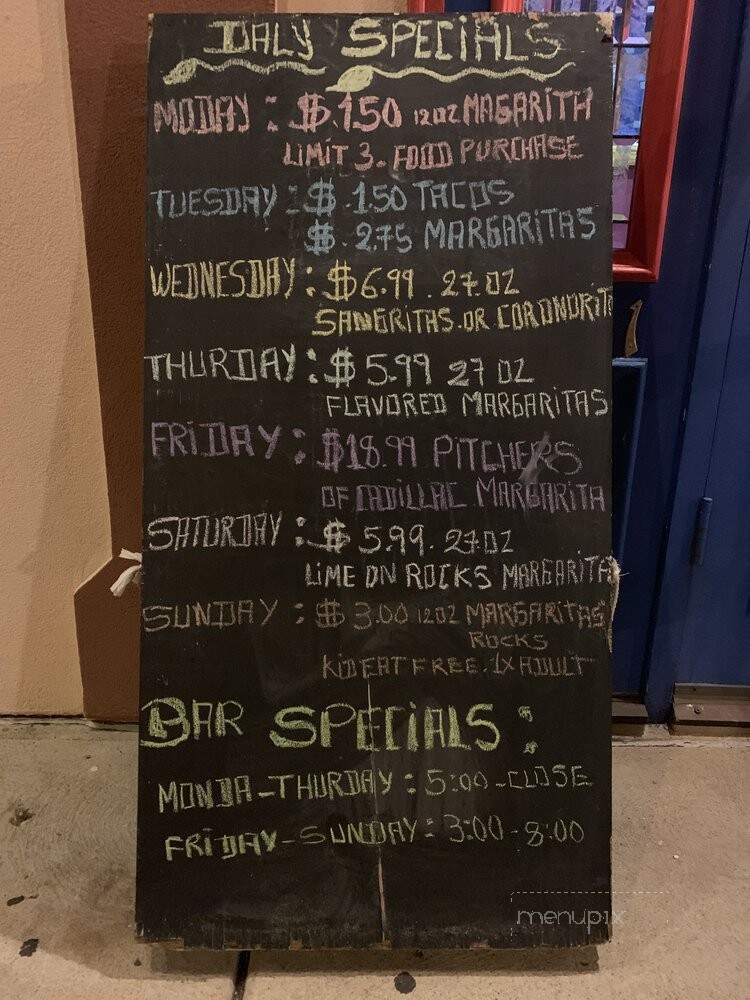 DALY SPECIALS
MODAY : $ .1.50 12OZ MAGARITH
LIMIT 3. FOOD PURCHASE
TUESDAY : $ .1.50 TACOS
$ . 2.75 MARGARITAS
WEDNESDAY : $ 6.99 . 27.OZ
SANGRITAS.OR CORONORIT
THURDAY : $ 5.99 27 OZ
FLAVORED MARGARITAS
FRIDAY : $18.99 PITCHERS
OF CADILLAC MARGARITA
SATURDAY : $ 5.99. 27OZ
LIME ON ROCKS MARGARITA
SUNDAY : $ 3.00 12OZ MARGARITAS
ROCKS
KID EAT FREE. 1X ADULT
BAR SPECIALS :
MONDA-THURDAY : 5:00-CLOSE
FRIDAY-SUNDAY : 3:00-8:00
menupix